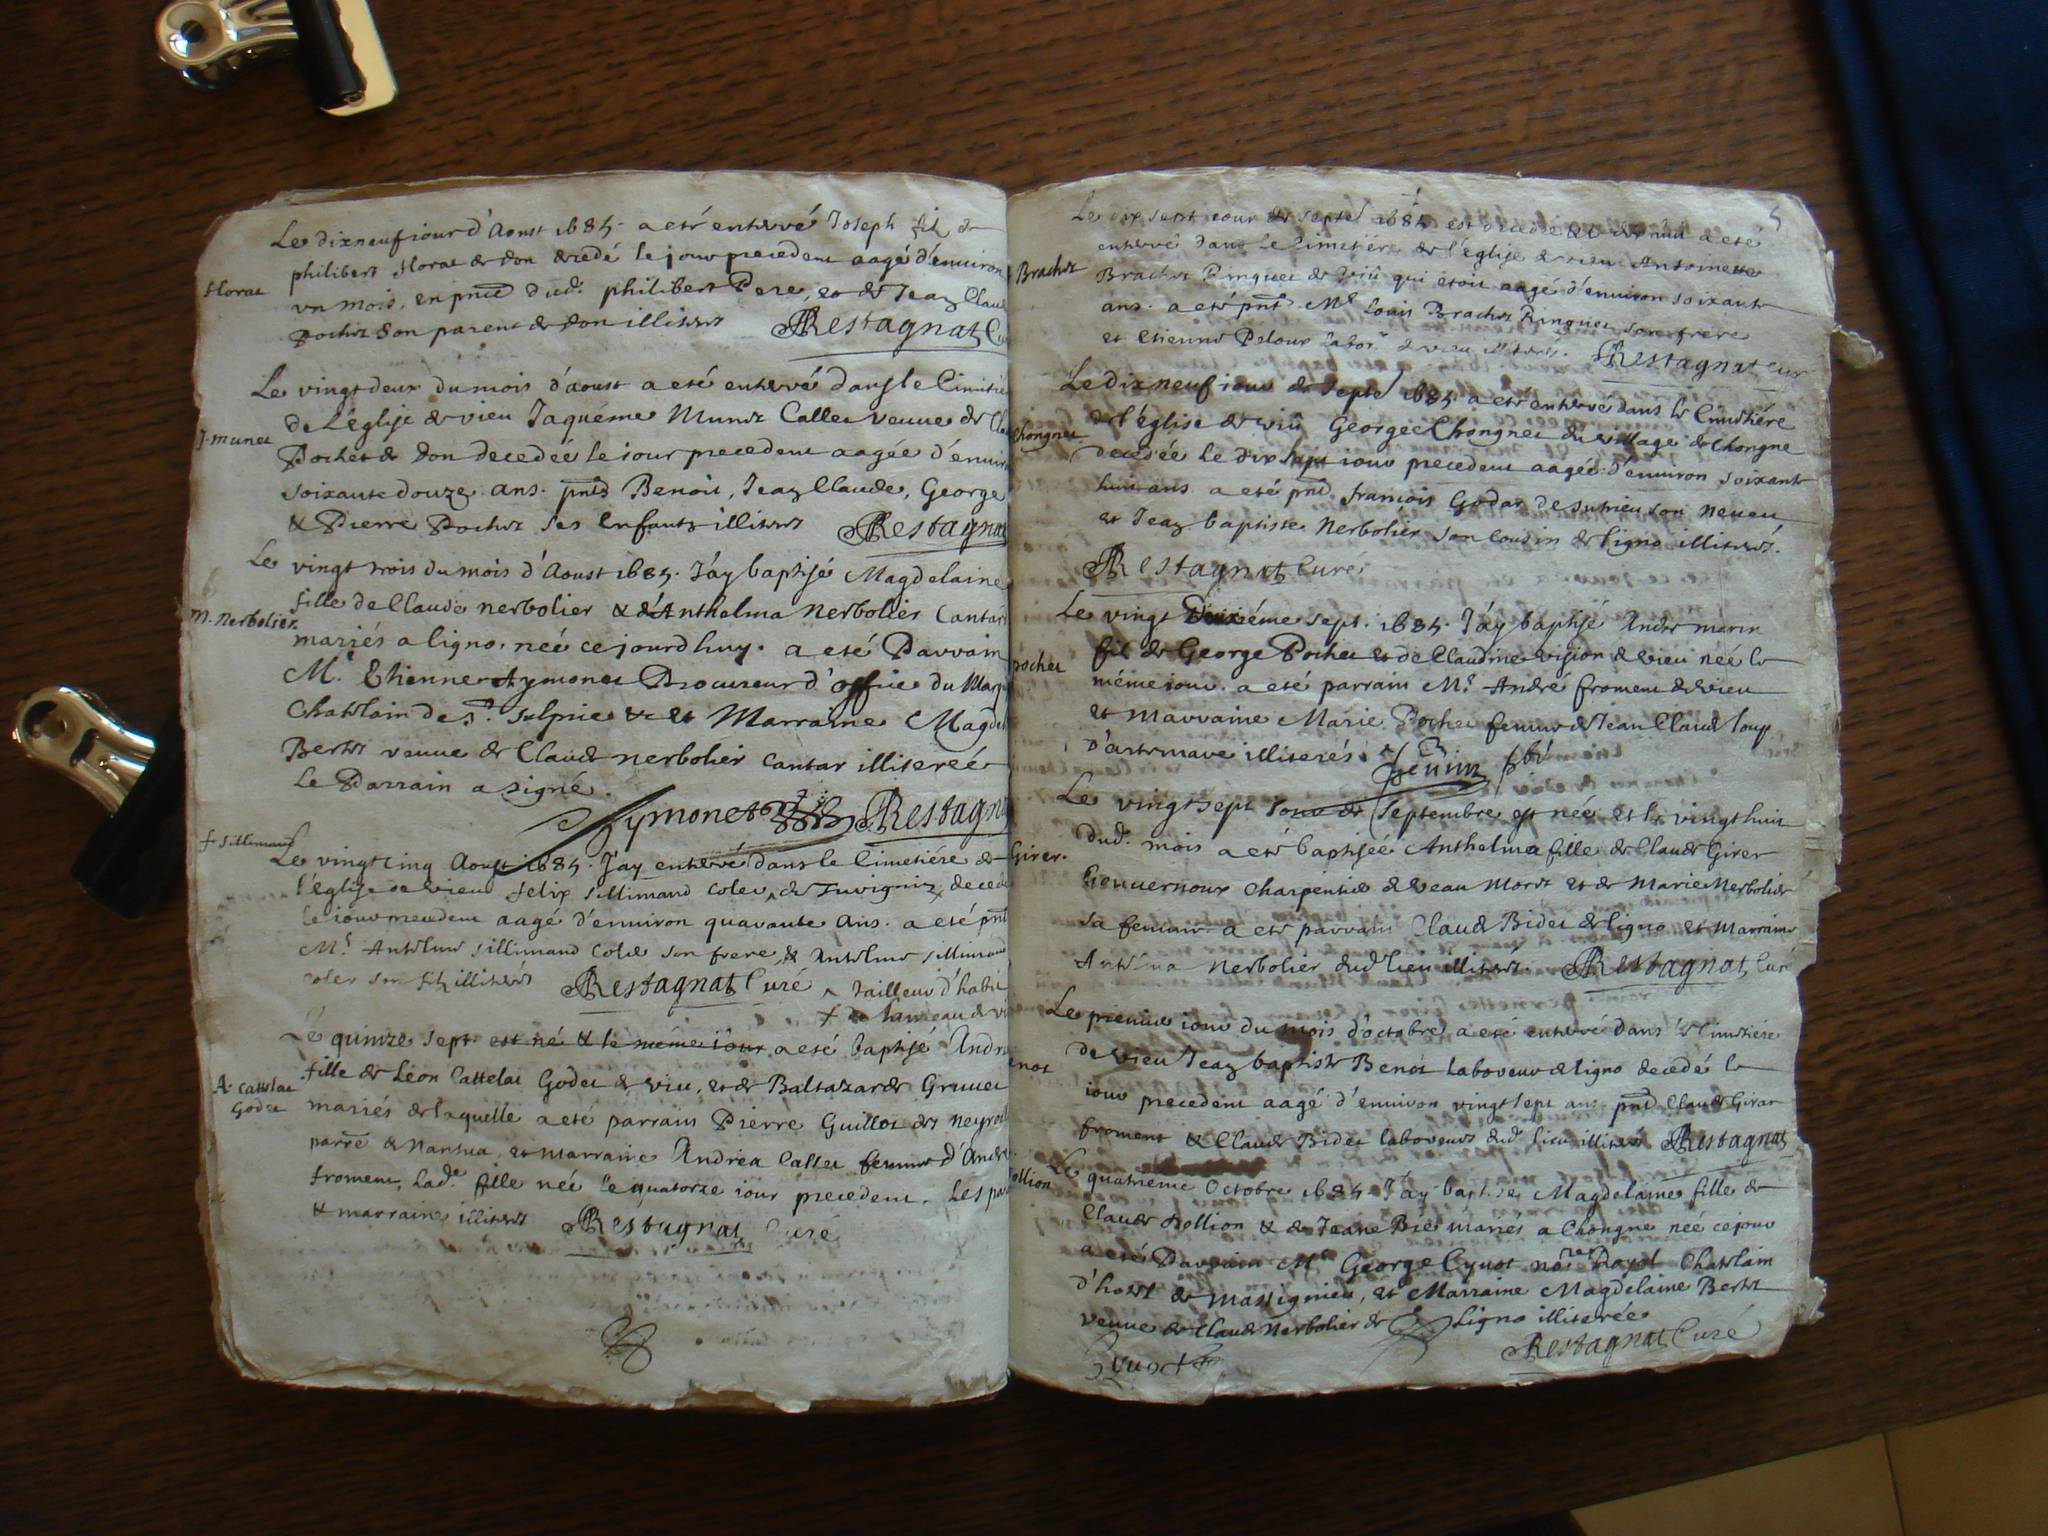 Le dixneufiour d'Aoust 1685 a eté enterré Joseph fil de
philibert Horat de don decedé le jour precedent aagé d'environ
Horat
un mois, en pnce dud. philibert Pere, et de Jean Claud
Pochet son parent de don illiteres Restagnat Cu
Le vingtdeux du mois d'aoust a eté enterré dans le Cimitie
de L'église de vieu Jaquéme Munet Callet veuve de Cla
J. munet
Pochet de don decedée le iour precedent aagée d'envir
soixante douze ans. pnts Benoit, Jean Claude, George
& Pierre Pochet ses enfants illiteres Restagnat
Le vingt trois du mois d'Aoust 1685. J'ay baptisé Magdelaine
fille de Claude nerbolier & d'Anthelma Nerbolier Cantar
M. Nerbolier.
mariés a ligno, née ce jourdhuy. a eté Parrain
Mr. Ethienne Aymonet Procureur d'office du Marq
Chatelain de St. Sulpice &c et Marraine Magde
Bertet veuve de Claude nerbolier cantar illiterée
Le Parrain a signé.
Aymonet Restagna
f. Sillimand
Le vingt cinq Aoust 1685. Jay enterré dans le Cimetiére de
l'église de vieu felix Sillimand Colet, de Juvigniz, decedé
le iour precedent aagé d'environ quarante ans. a eté pnt
Mr. Antelme Sillimand Colet son frere, & Antelme Sillimand
colet son filz illiteres Restagnat Curé ^ Tailleur d'habit
+ de hameau de vi
Le quinze Sept. est né & le même iour a eté baptisé Andre
fille de Léon Cattelat Godet de vieu, et de Baltazarde Gruvet
A. Cattelat
Godet
mariés de laquelle a eté parrain Pierre Guillot des neyrol
parre de Nantua, et marraine Andrea Callet femme d'André
froment, Lade. fille née le quatorze iour precedent. Les pa
& marraine illiteres Restagnat Curé
5
Le dix sept iour de Septe 1685 est decedée & le iour a eté
enterré dans le Cimetiére de l'église de vieu Antoinette
Brachet
Brachet Ringuet de viû qui étoit aagé d'environ soixante
ans. a eté pnt Mr Louis Brachet Ringuet son frere
et Etienne Peloux labor de vieu illiterés. Restagnat Cur
Le dix neuf iour de Septe 1685 a eté enterré dans le Cimitiére
de l'église de viû George Chongnet du village de Chongne
Chongnet
decedée le dix sept iour precedent aagée d'environ soixante
huit ans a eté pnt françois Godar de sutrieu son neveu
et Jean baptiste Nerbolier son Cousin de ligno illiteres.
Restagnat Curé
Le vingt Deuxiéme Sept. 1685. J'ay baptisé Andre merin
fil de George Pochet et de Claudine vision de vieu née le
pochet
même iour. a eté parrain Mr. André froment de vieu
et marraine Marie Pochet femme de Jean Claud loup
d'artemave illiterés.
Le vingtsept iour de Septembre est née et le vingthuit
dud. mois a eté baptisée Anthelma fille de Claude Girer
Girer.
Gouvernoux Charpentier de veau Moret et de Marie Nerbolier
sa femme a eté parrain Claude Bidet de ligno et Marraine
Antelma Nerbolier dud. lieu illiteres. Restagnat Curé
Le premier iour du mois d'octobre a eté enterré dans le Cimetiére
de vieu Jean baptiste Benot laboureur de ligno decedé le
enot
iour precedent aagé d'environ vingt sept ans pnt Claude Girar
froment & Claude Bidet laboureurs dud. lieu illiterés Restagnat
Le quatrieme Octobre 1685. J'ay baptisé Magdelaine fille de
ollion
Claude Hollion & de Jeane Bie mariés a Chongne née ce jour
a eté Parrain Mr George Cyuot nore Royal Chatelain
d'hotel de Massignieu, et Marraine Magdelaine Bertet
veuve de Claude Nerbolier de Ligno illiterée
Restagnat Curé